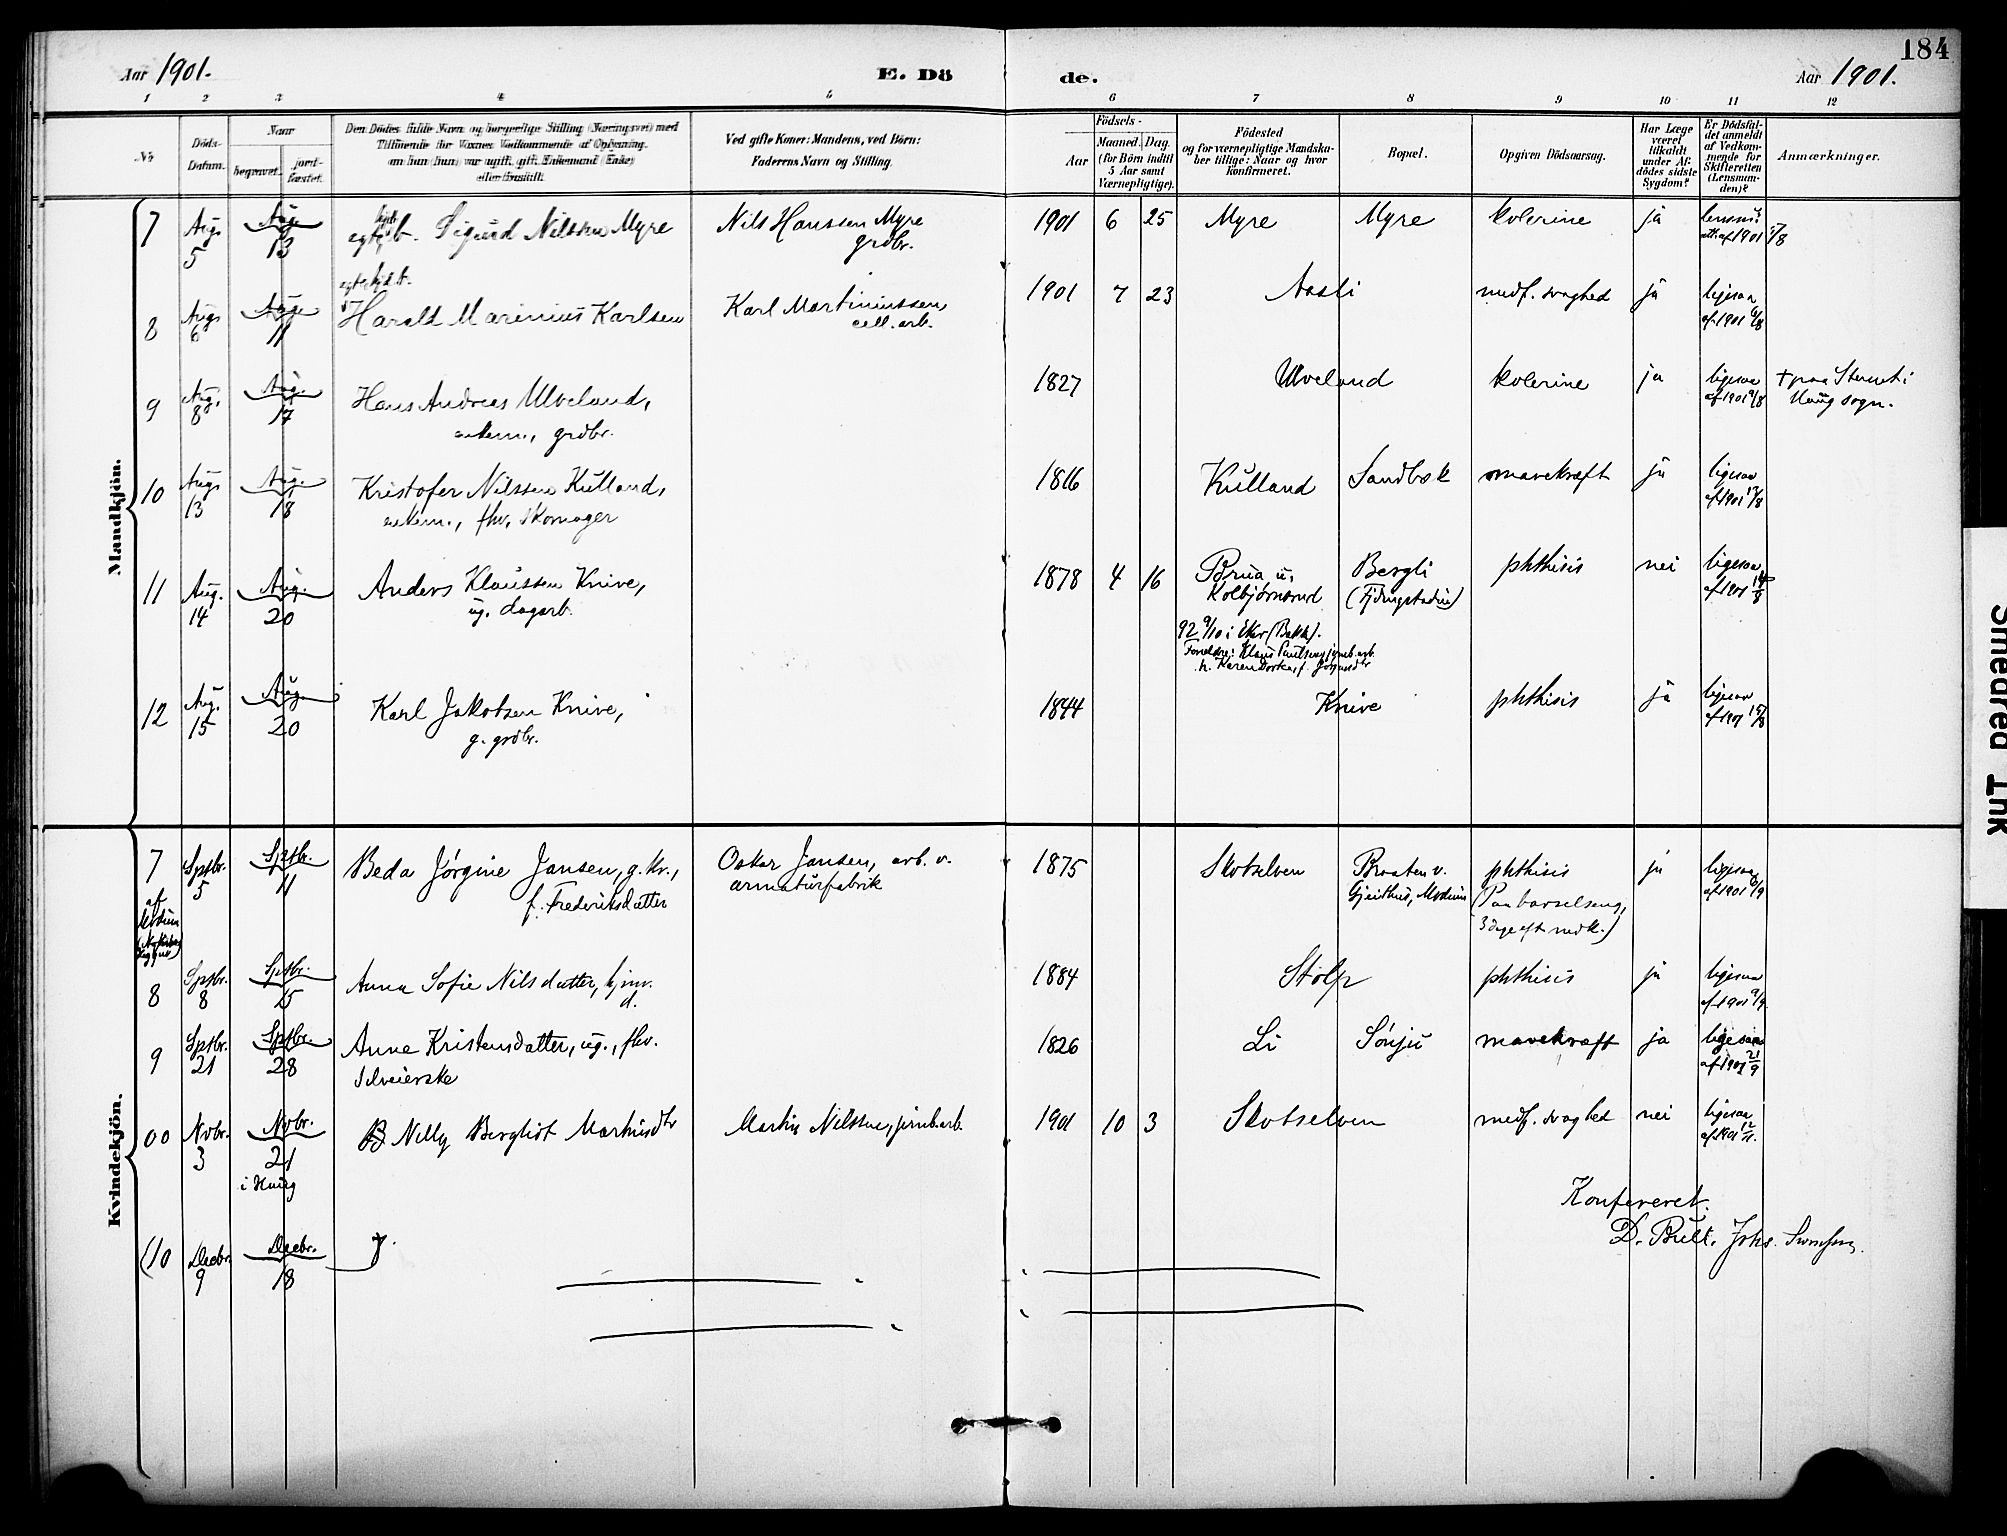 184
Aar 1901.
E. Dö
de.
Aar 1901.
1 2 3 4 5 6 7 8 9 10 11 12
No.
Döds-Datum.
Naar
begravet.
jord-fæstet.
Den Dödes fulde Navn og borgerlige Stilling (Næringsvei) med
Tilföiende for Voxnes Vedkommende af Oplysning,
om han (hun) var ugift, gift, Enkemand (Enke)
eller fraskilt.
Ved gifte Koner: Mandens, ved Börn:
Faderens Navn og Stilling.
Födsels-
Aar
Maaned. Dag.
(for Börn indtil
5 Aar samt
Værnepligtige).
Födested
og for værnepligtige Mandska-
ber tillige: Naar og hvor
konfirmeret.
Bopæl.
Opgiven Dödsaarsag.
Har Læge
været
tilkaldt
under Af-
dödes sidste
Sygdom?
Er Dödsfal-
det anmeldt
af Vedkom-
mende for
Skifteretten
(Lensman-
den)?
Anmærkninger.
Mandkjön.
7 Aug. 5 Aug. 13 Sigurd Nilssen Myre Nils Hanssen Myre grdbr. 1901 6 25 Myre Myre kolerine ja af 1901 7/8
8 Aug. 6 Aug. 11 Harald Marinius Karlsen Karl Martiniussen, cell. arb. 1901 7 23 Aasli medf. svaghed ja ligesaa af 1901 6/8
9 Aug. 8 Aug. 17 Hans Andreas Ulveland, enkem., grdbr. 1827 Ulveland kolerine ja ligesaa af 1901 9/8 + paa i Haug sogn.
10 Aug. 13 Aug. 18 Kristofer Nilssen Kulland, enkem., fhv. skomager 1816 Kulland Sandbæk mavekræft ja ligesaa af 1901 17/8
11 Aug. 14 Aug. 20 Anders Klaussen Knive, ug. dagarb. 1878 4 16 Brua u. Kolbjörnsrud Bergli phthisis nei ligesaa af 1901 14/8
92 9/10 i Eker (Bakke).
Foreldre: Klaus Paulsen, jernb.arb.
h. Karen
12 Aug. 15 Aug. 20 Karl Jakobsen Knive, g. grdbr. 1844 Knive phthisis ja ligesaa af 1901 15/8
Kvindekjön.
7 Septbr. 5 Septbr. 11 Beda Jörgine Jansen, g. kv., f. Frederiksdatter Oskar Jansen, arb. v. armaturfabrik 1875 Skotselven Braaten v. Gjeithus, Modum phthisis (Paa barselseng, 3 dage eft. nedk.) ja ligesaa af 1901 6/9
af Modum
8 Septbr. 8 Septbr. 15 Anna Sofie Nilsdatter, hjmv. d. 1884 Stolp phthisis ja ligesaa af 1901 9/9
9 Septbr. 21 Septbr. 28 Anne Kristensdatter, ug., fhv. selveierske 1826 Li Sönju mavekræft ja ligesaa af 1901 21/9
00 Novbr. 3 Novbr. 21 i Haug Nelly Bergliot Martinsdtr Martin Nilssen, jernb.arb. 1901 10 3 Skotselven medf. svaghed nei ligesaa af 1901 12/11.
Konfereret.
D. Bull. Johs.
(10 Decbr. 9 Decbr. 18
Smedrud Ink